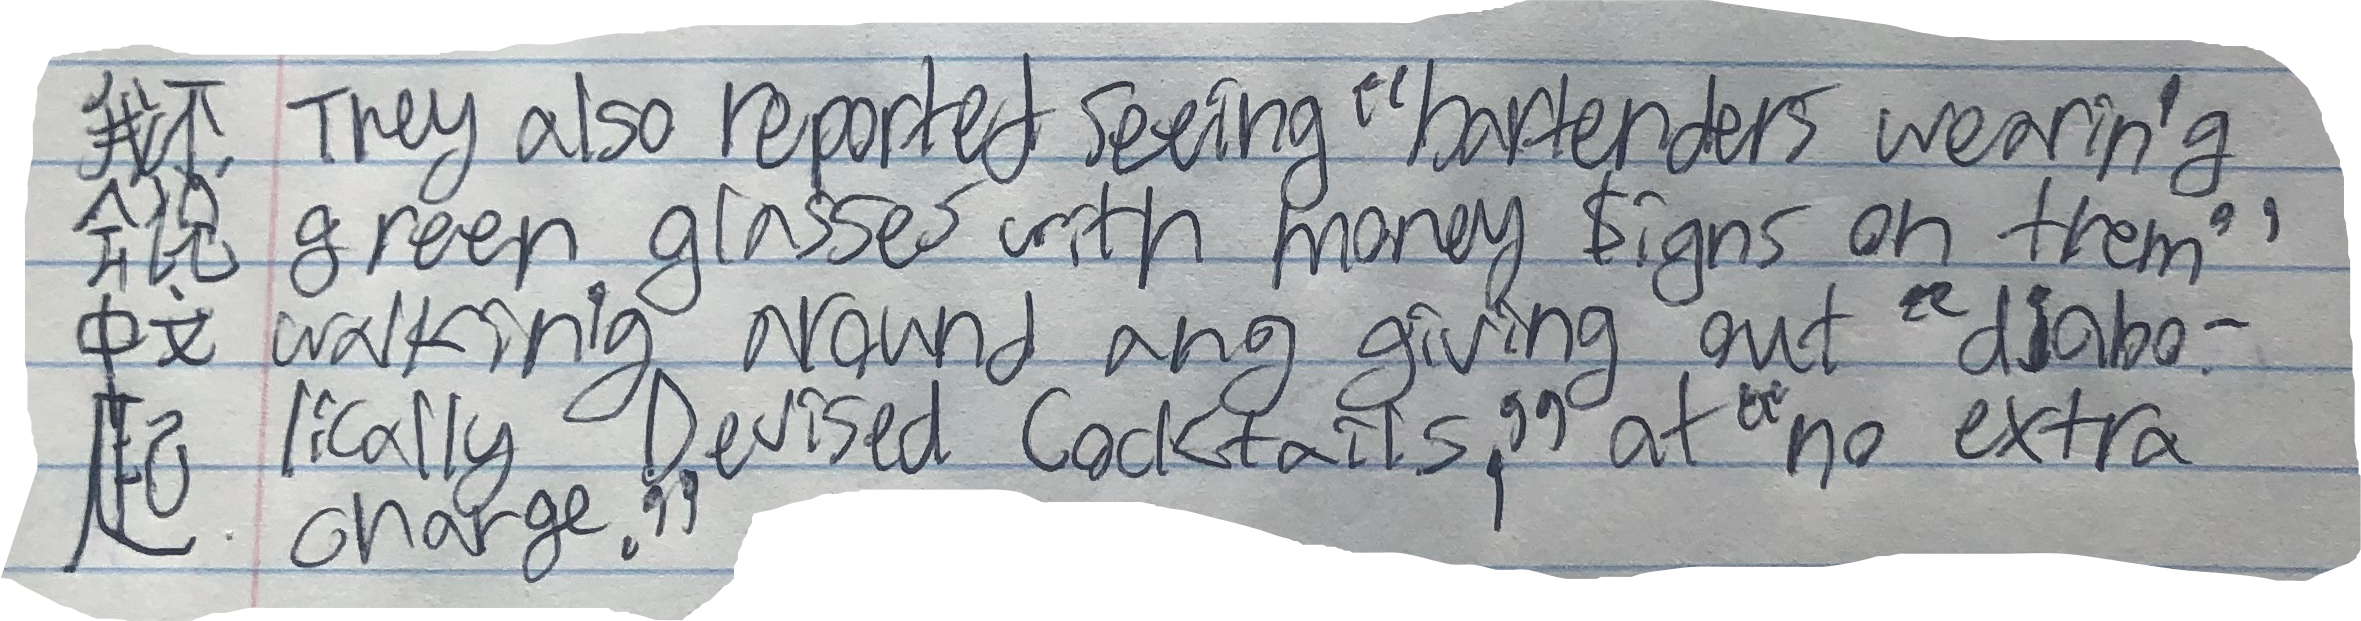 我不 They also reported seeing “bartenders wearin'g
会说 green glasses with money $igns on them”
中文 walkin'g around ang giving out “diabo-
起. lically Devised Cocktails,” at “no extra
charge.”